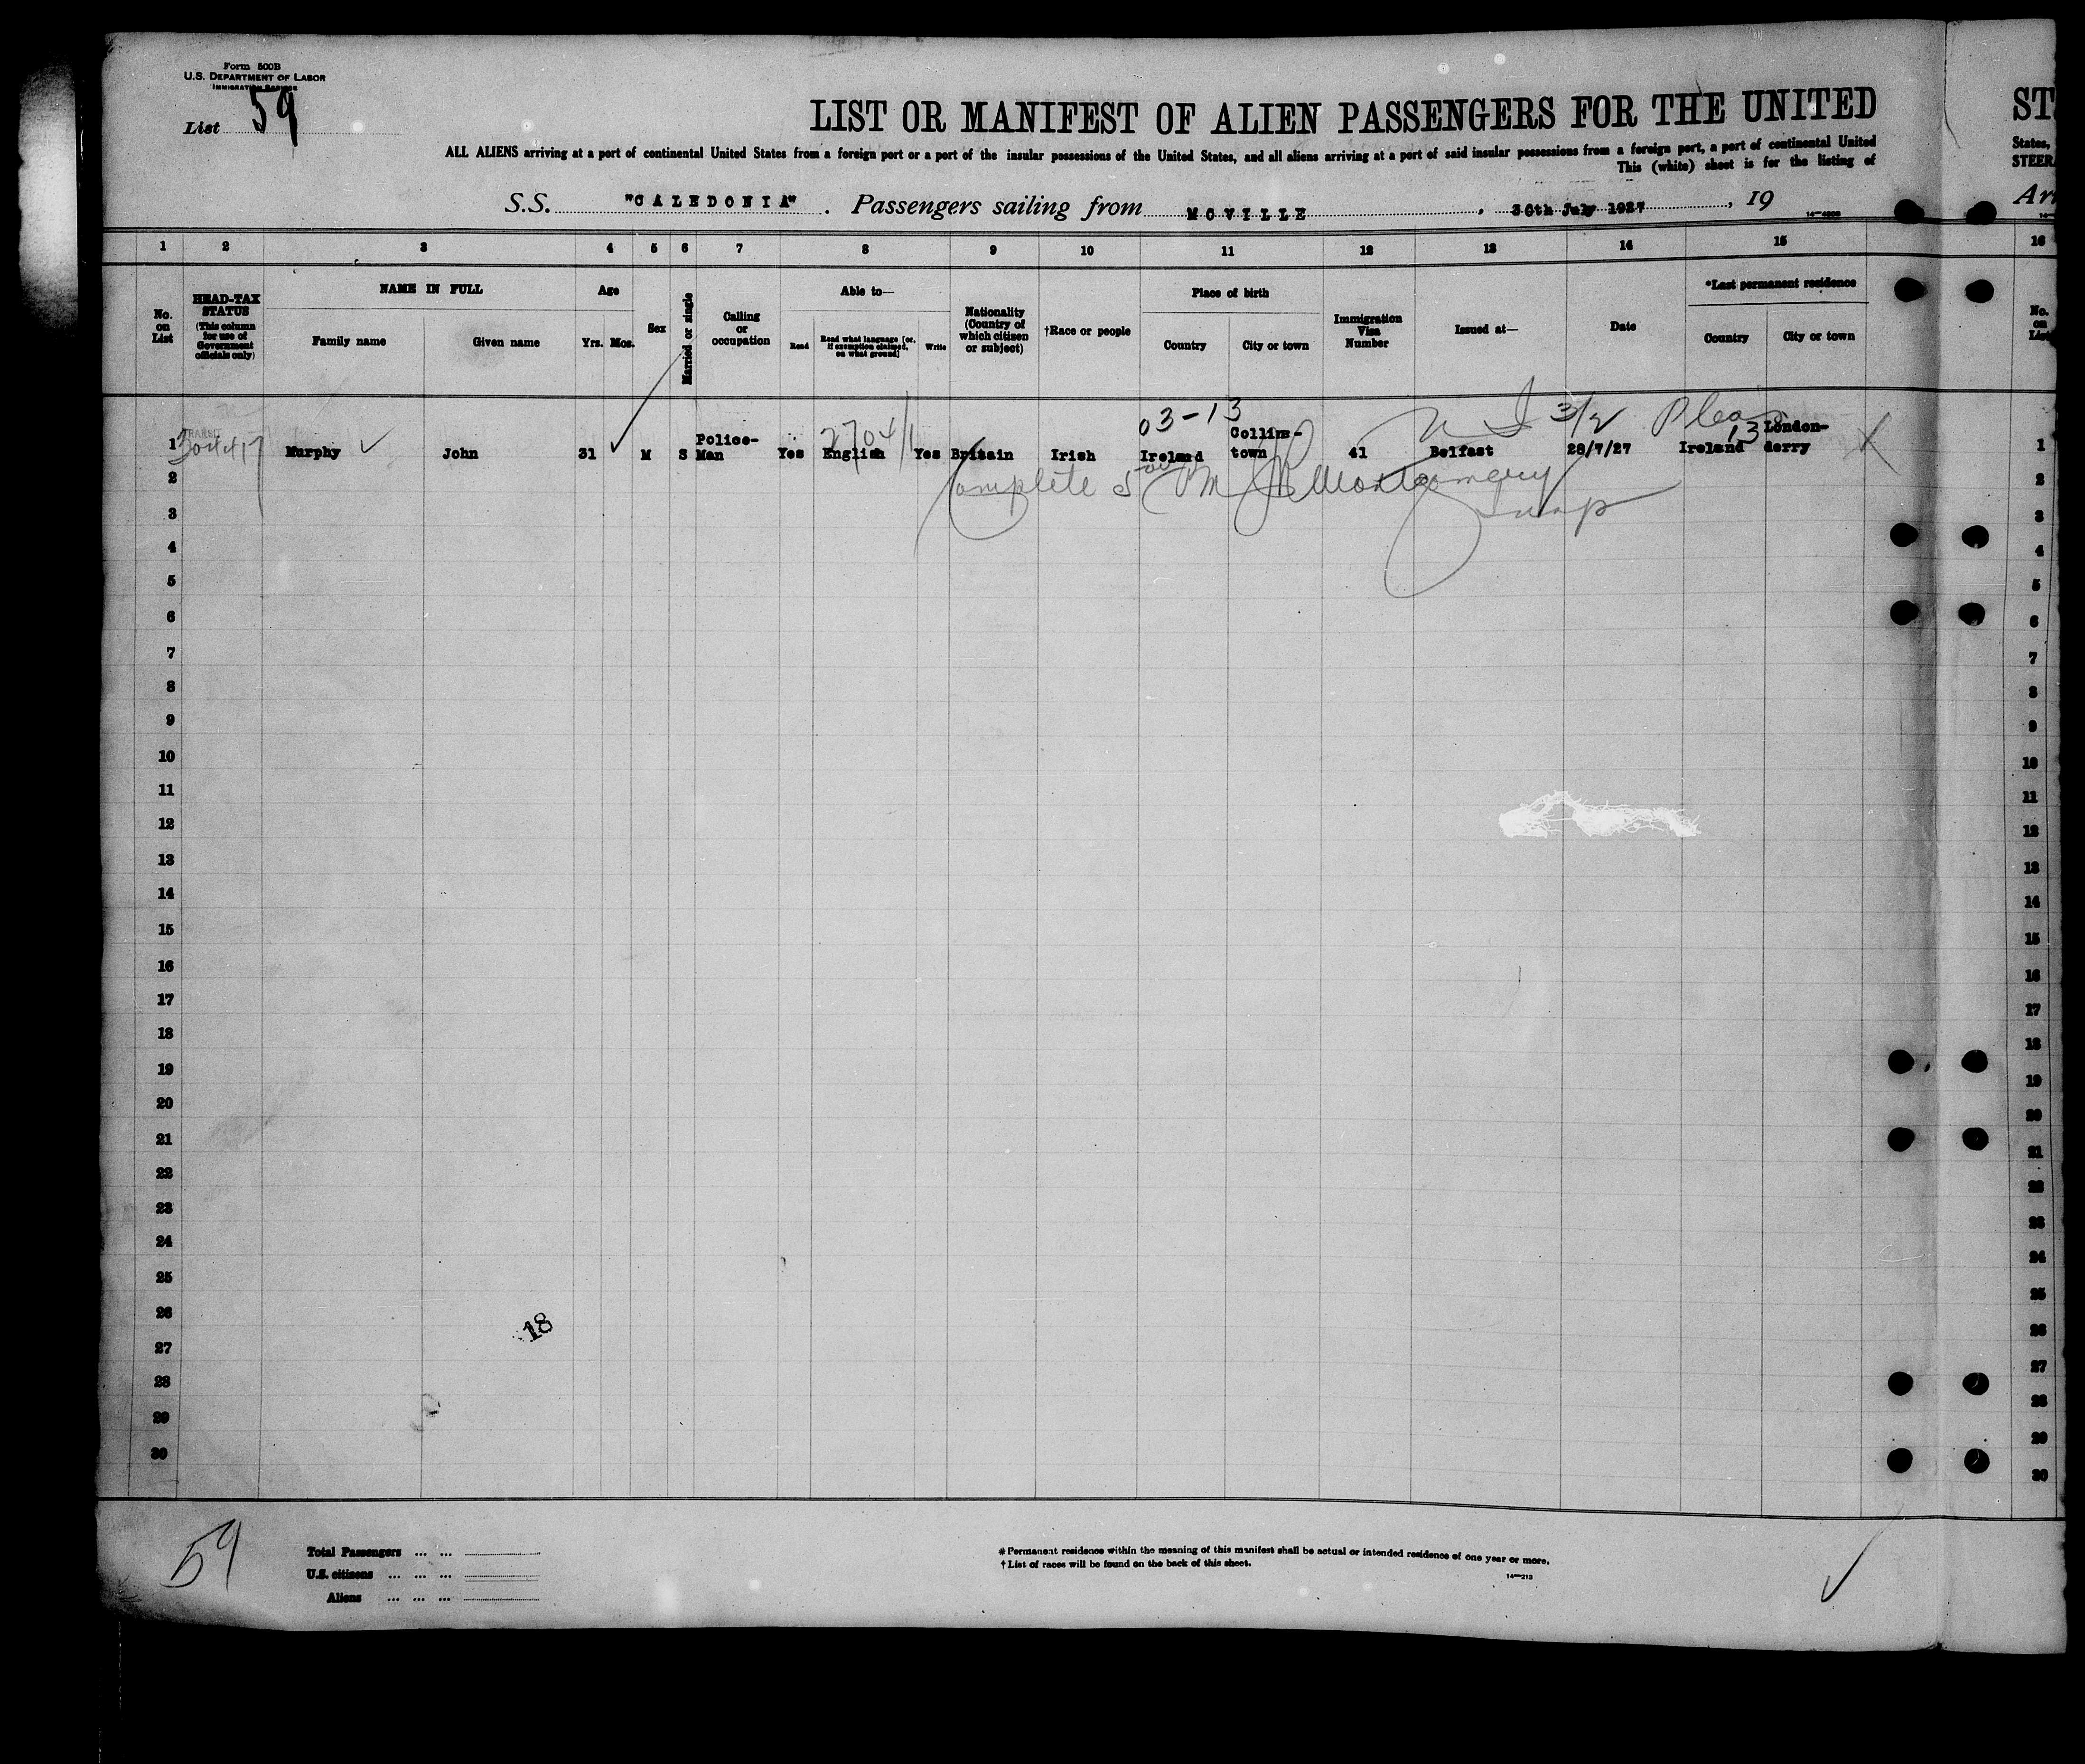 Form 500B
U.S. DEPARTMENT OF LABOR
IMMIGRATION SERVICE
List 59
LIST OR MANIFEST OF ALIEN PASSENGERS FOR THE UNITED
ST
ALL ALIENS arriving at a port of continental United States from a foreign port or a port of the insular possessions of the United States, and all aliens arriving at a port of said insular possessions from a foreign port, a port of continental United
States,
This (white) sheet is for the listing of
STEER
S.S. "CALEDONIA". Passengers sailing from MOVILLE, 30th July 1927, 19
Arr
1 2 3 4 5 6 7 8 9 10 11 12 13 14 15 16
No. on List
HEAD-TAX STATUS (This column for use of Government officials only)
NAME IN FULL
Family name Given name
Age
Yrs. Mos.
Sex
Married or single
Calling or occupation
Able to—
Read Read what language [or, if exemption claimed, on what ground] Write
Nationality (Country of which citizen or subject)
†Race or people
Place of birth
Country City or town
Immigration Visa Number
Issued at—
Date
*Last permanent residence
Country City or town
No. on List
03-13
3/2
TRANSIT
27041
13
1 Murphy John 31 M S Police-Man Yes English Yes Britain Irish Ireland Collins-town 41 Belfast 28/7/27 Ireland London-derry 1
Complete Montgomery
Insp
2 2
3 3
4 4
5 5
6 6
7 7
8 8
9 9
10 10
11 11
12 12
13 13
14 14
15 15
16 16
17 17
18 18
19 19
20 20
21 21
22 22
23 23
24 24
25 25
26 26
18
27 27
28 28
29 29
30 30
59
Total Passengers ... ...
U.S. citizens ... ... ...
Aliens ... ... ...
*Permanent residence within the meaning of this manifest shall be actual or intended residence of one year or more.
†List of races will be found on the back of this sheet.
14—213